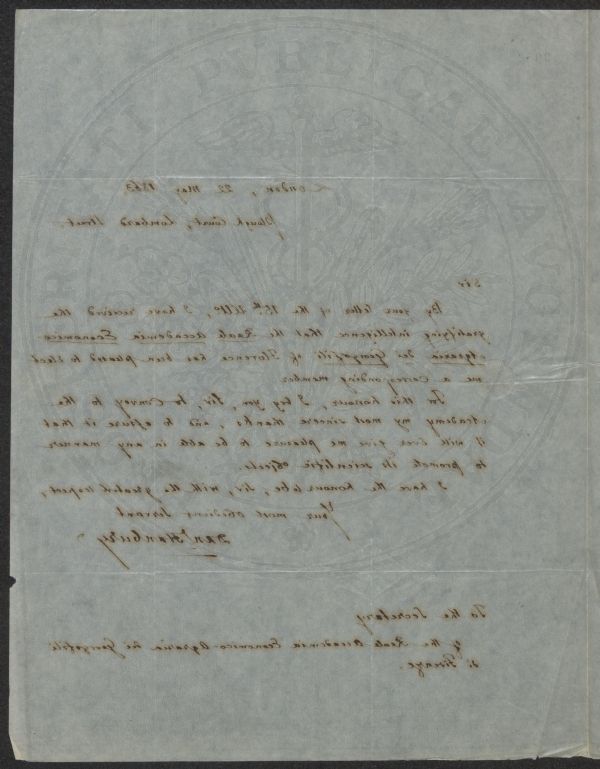 PROSPERITATI PUBLICAE AUGENDAE
London, 22 May 1863
Plough Court, Lombard Street.
Sir
By your letter of the 12th Ulto, I have received the
gratifying intelligence that the Reale Accademia Economico
Agraria dei Georgofili of Florence has been pleased to elect
me a Corresponding Member.
For this honour, I beg you, Sir, to convey to the
Academy my most sincere thanks, and to assure it that
it will ever give me pleasure to be able in any manner
to promote its scientific objects.
I have the honour to be, Sir, with the greatest respect,
Your most obedient Servant
Danl Hanbury
To the Secretary
of the Reale Accademia Economico-Agraria dei Georgofili
di Firenze.